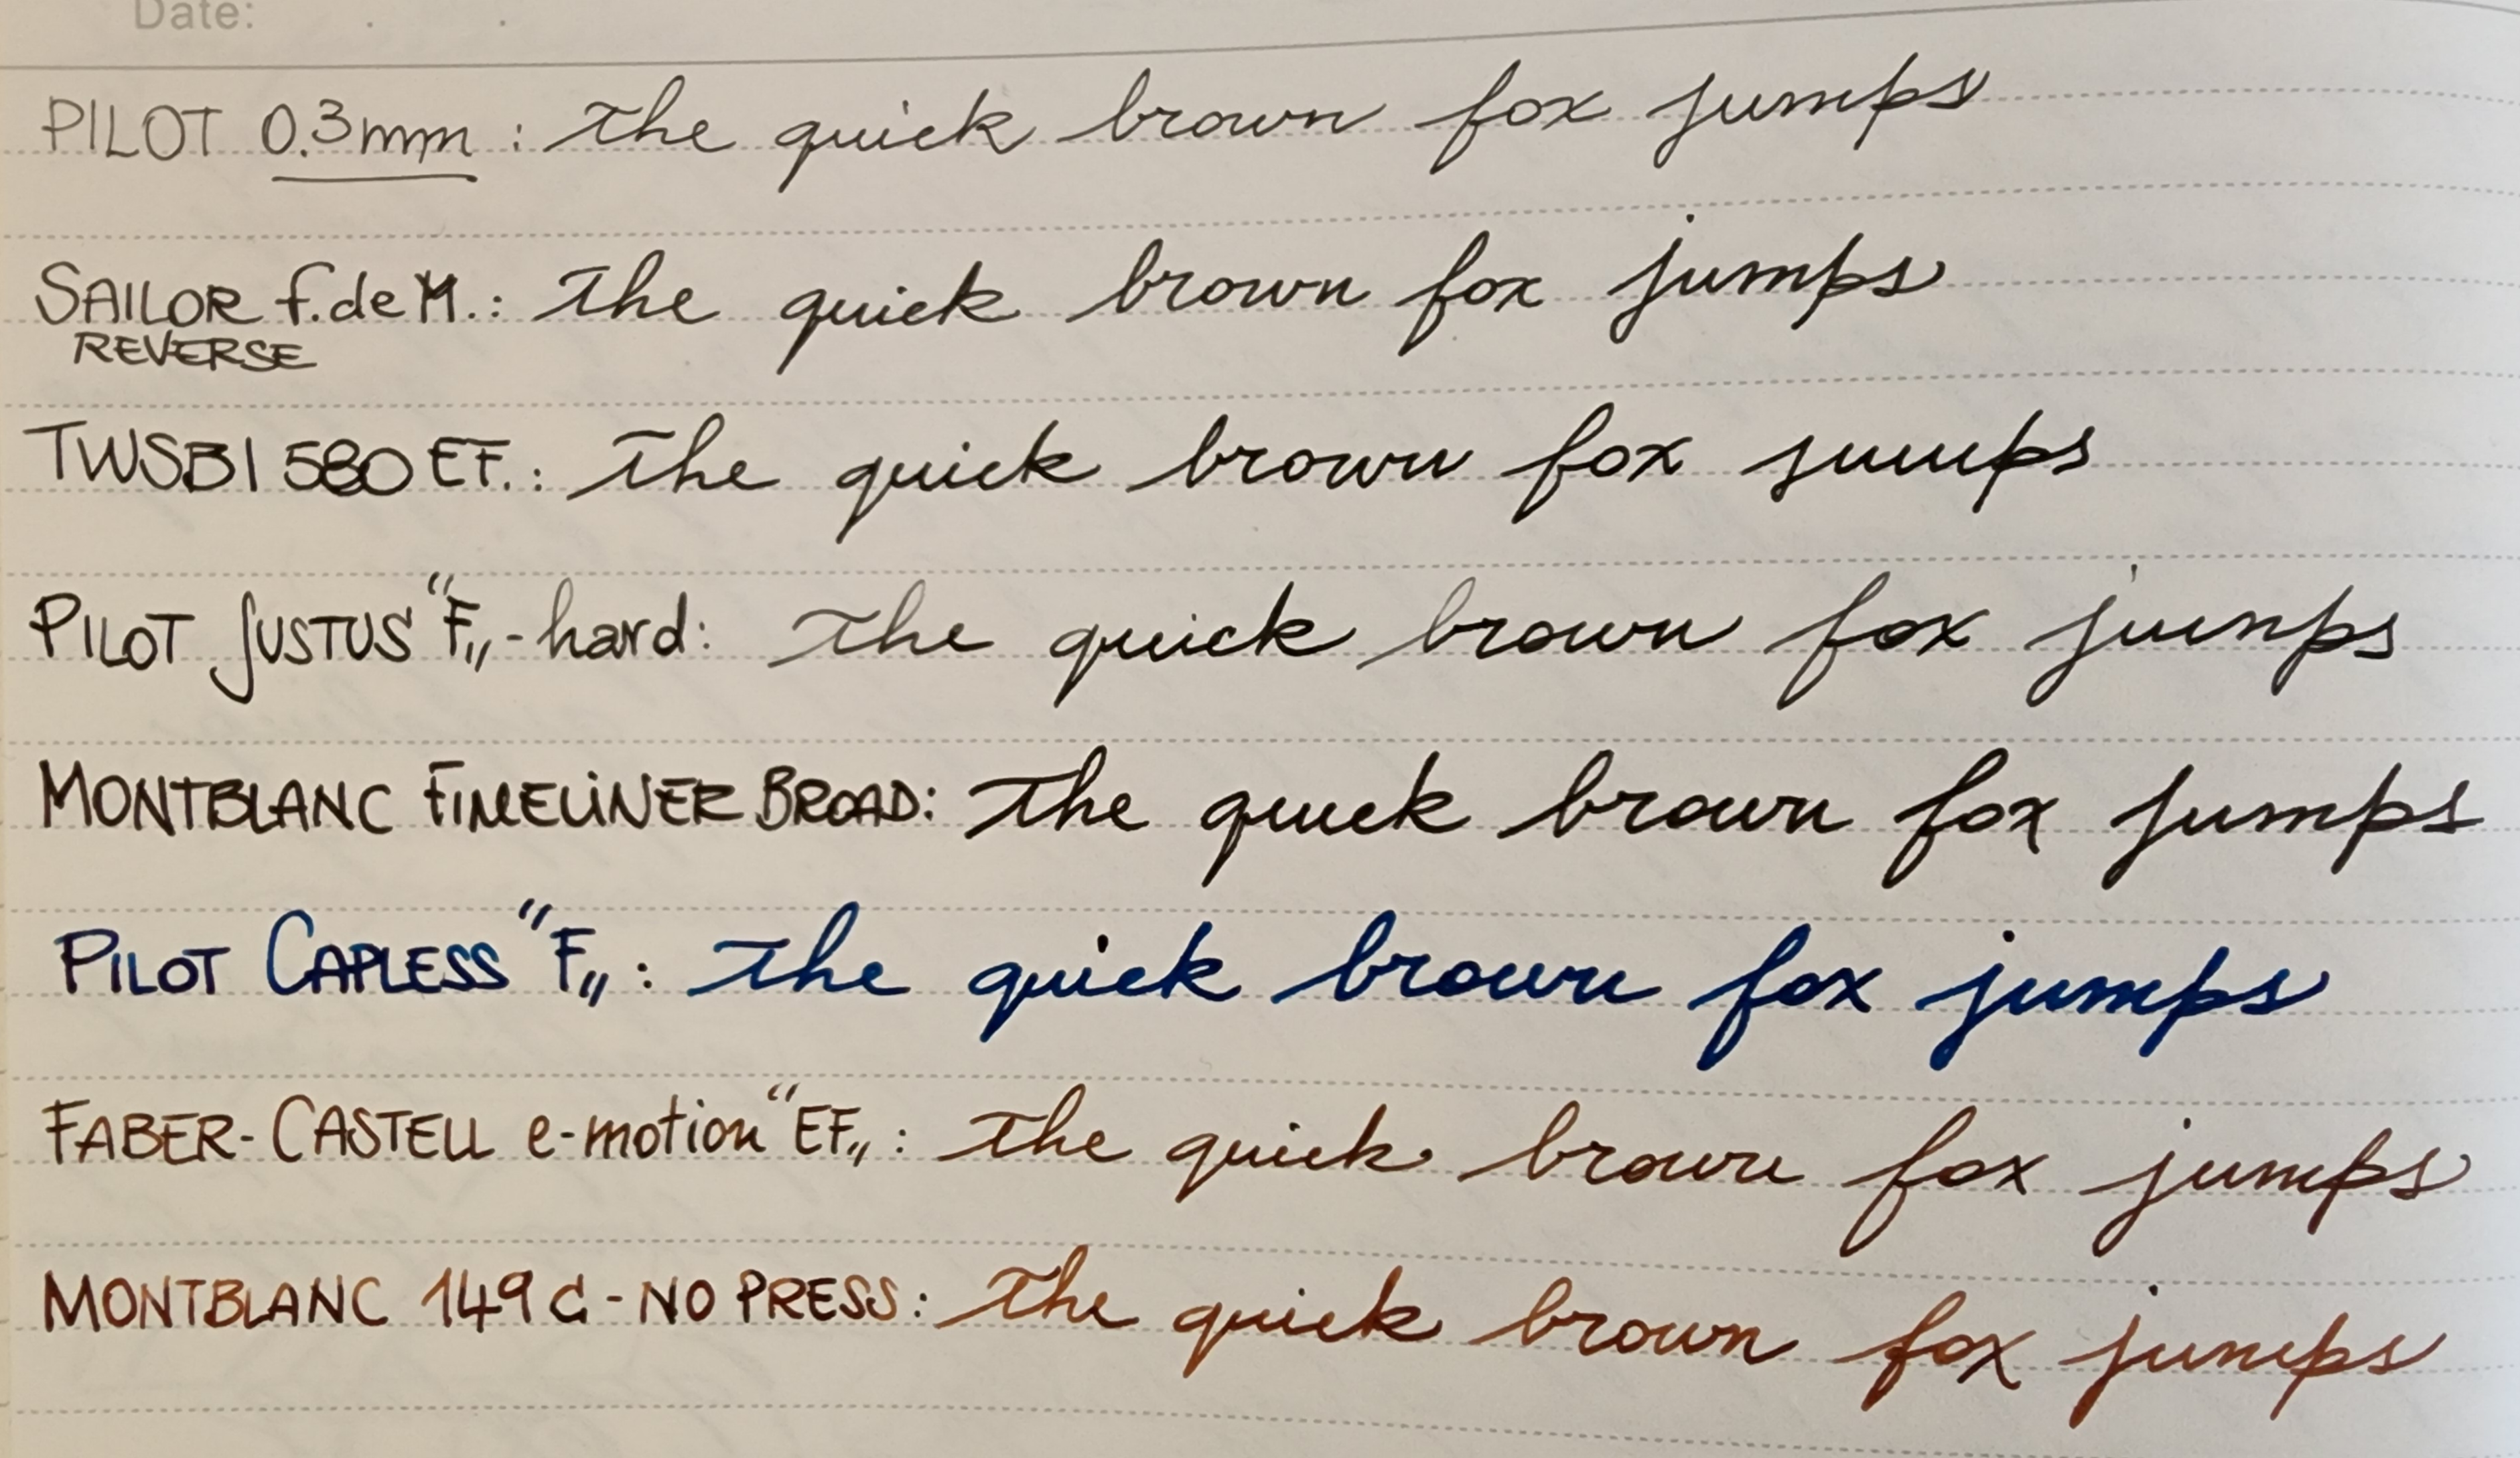 Date: . .
PILOT 0.3mm : the quick brown fox jumps
SAILOR f.de M. : the quick brown fox jumps
REVERSE
TWSBI 580 EF. : the quick brown fox jumps
PILOT JUSTUS "F„ - hard : the quick brown fox jumps
MONTBLANC FINELINER BROAD : the quick brown fox jumps
PILOT CAPLESS "F„ : the quick brown fox jumps
FABER-CASTELL e-motion "EF„ : the quick brown fox jumps
MONTBLANC 149 C - NO PRESS : the quick brown fox jumps